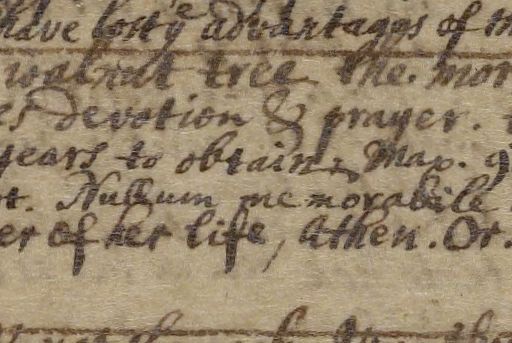 have lost yͤ advantages of m
walnut tree the. mor
es devotion & prayer.
years to obtain, Max. g
t. Nullum memorabile
er of her life, Athen. Or.